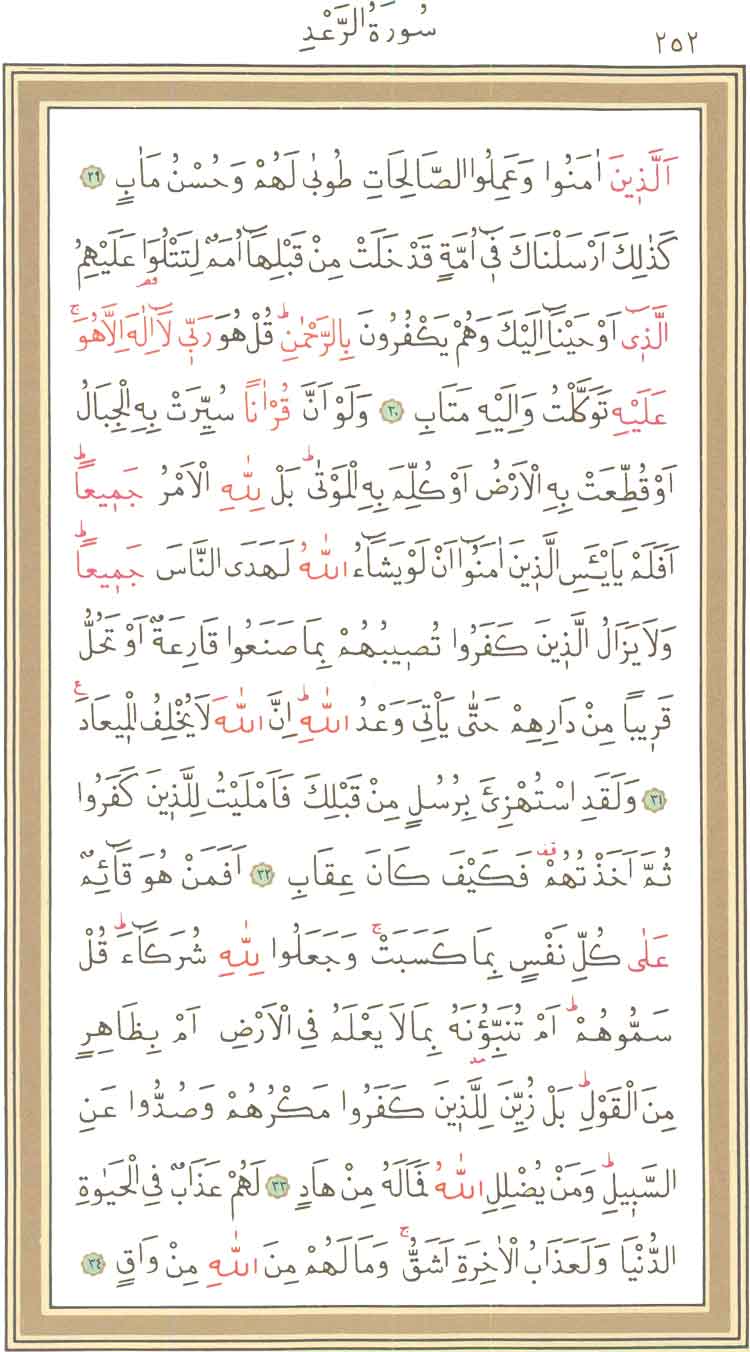 سُورَةُ الرَّعْدِ ٢٥٢
اَلَّذ۪ينَ اٰمَنُوا وَعَمِلُوا الصَّالِحَاتِ طُوبٰى لَهُمْ وَحُسْنُ مَاٰبٍ ﴿٢٩﴾
كَذٰلِكَ اَرْسَلْنَاكَ ف۪ٓي اُمَّةٍ قَدْ خَلَتْ مِنْ قَبْلِهَٓا اُمَمٌ لِتَتْلُوَا۬ عَلَيْهِمُ
الَّذ۪ٓي اَوْحَيْنَٓا اِلَيْكَ وَهُمْ يَكْفُرُونَ بِالرَّحْمٰنِۜ قُلْ هُوَ رَبّ۪ي لَٓا اِلٰهَ اِلَّا هُوَۚ
عَلَيْهِ تَوَكَّلْتُ وَاِلَيْهِ مَتَابِ ﴿٣٠﴾ وَلَوْ اَنَّ قُرْاٰناً سُيِّرَتْ بِهِ الْجِبَالُ
اَوْ قُطِّعَتْ بِهِ الْاَرْضُ اَوْ كُلِّمَ بِهِ الْمَوْتٰىۜ بَلْ لِلّٰهِ الْاَمْرُ جَم۪يعاًۜ
اَفَلَمْ يَايْـَٔسِ الَّذ۪ينَ اٰمَنُٓوا اَنْ لَوْ يَشَٓاءُ اللّٰهُ لَهَدَى النَّاسَ جَم۪يعاًۜ
وَلَا يَزَالُ الَّذ۪ينَ كَفَرُوا تُص۪يبُهُمْ بِمَا صَنَعُوا قَارِعَةٌ اَوْ تَحُلُّ
قَر۪يباً مِنْ دَارِهِمْ حَتّٰى يَأْتِيَ وَعْدُ اللّٰهِۜ اِنَّ اللّٰهَ لَا يُخْلِفُ الْم۪يعَادَ۟
﴿٣١﴾ وَلَقَدِ اسْتُهْزِئَ بِرُسُلٍ مِنْ قَبْلِكَ فَاَمْلَيْتُ لِلَّذ۪ينَ كَفَرُوا
ثُمَّ اَخَذْتُهُمْ۠ فَكَيْفَ كَانَ عِقَابِ ﴿٣٢﴾ اَفَمَنْ هُوَ قَٓائِمٌ
عَلٰى كُلِّ نَفْسٍ بِمَا كَسَبَتْۚ وَجَعَلُوا لِلّٰهِ شُرَكَٓاءَۜ قُلْ
سَمُّوهُمْۜ اَمْ تُنَبِّؤُ۫نَهُ بِمَا لَا يَعْلَمُ فِي الْاَرْضِ اَمْ بِظَاهِرٍ
مِنَ الْقَوْلِۜ بَلْ زُيِّنَ لِلَّذ۪ينَ كَفَرُوا مَكْرُهُمْ وَصُدُّوا عَنِ
السَّب۪يلِۜ وَمَنْ يُضْلِلِ اللّٰهُ فَمَا لَهُ مِنْ هَادٍ ﴿٣٣﴾ لَهُمْ عَذَابٌ فِي الْحَيٰوةِ
الدُّنْيَا وَلَعَذَابُ الْاٰخِرَةِ اَشَقُّۚ وَمَا لَهُمْ مِنَ اللّٰهِ مِنْ وَاقٍ ﴿٣٤﴾